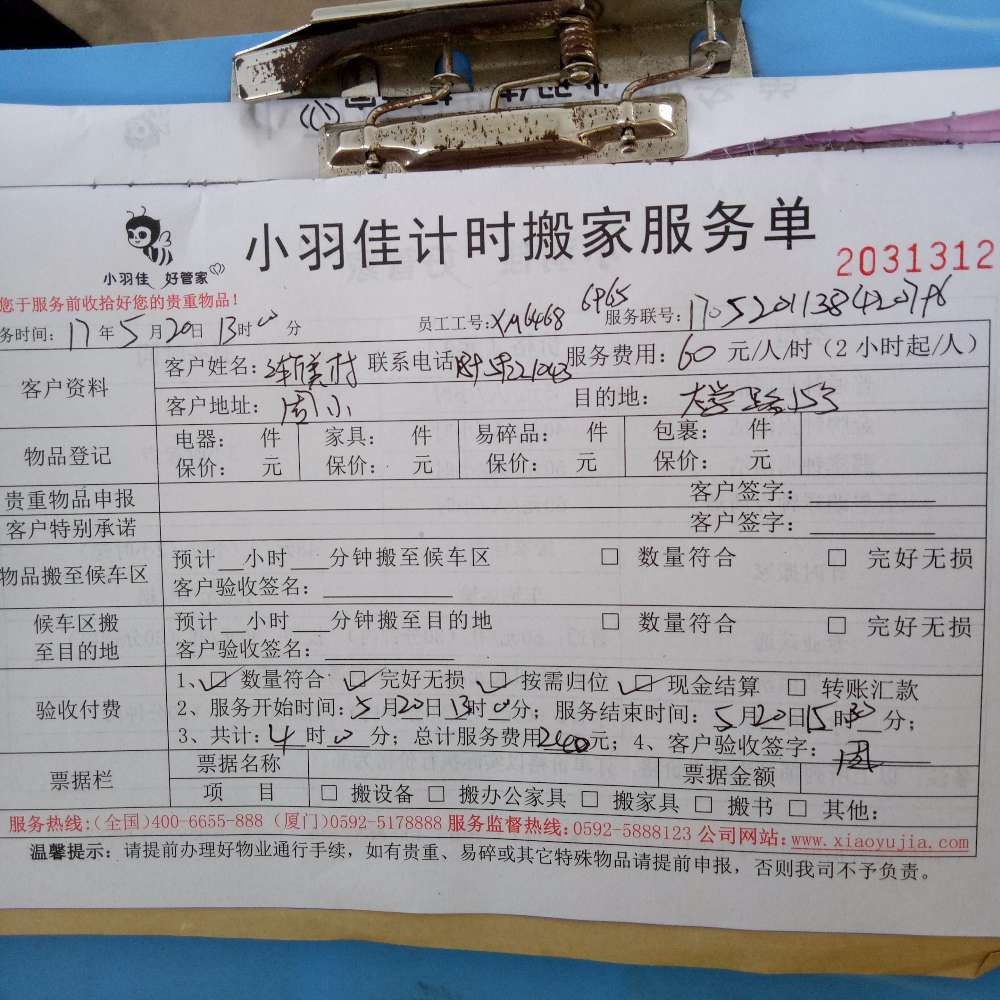 小羽佳 好管家
小羽佳计时搬家服务单
2031312
您于服务前收拾好您的贵重物品!
务时间: 17 年 5 月 20 日 13 时 00 分 员工工号: XM6468 6965 服务联号:
客户资料
客户姓名: 联系电话 服务费用: 60 元/人/时 (2 小时起/人)
客户地址: 周小 目的地: 大学路153
物品登记
电器: 件 家具: 件 易碎品: 件 包裹: 件
保价: 元 保价: 元 保价: 元 保价: 元
贵重物品申报 客户签字:
客户特别承诺 客户签字:
物品搬至候车区
预计__小时___分钟搬至候车区 □ 数量符合 □ 完好无损
客户验收签名:
候车区搬
至目的地
预计__小时___分钟搬至目的地 □ 数量符合 □ 完好无损
客户验收签名:
验收付费
1、☑ 数量符合 ☑ 完好无损 ☑ 按需归位 ☑ 现金结算 □ 转账汇款
2、服务开始时间: 5 月 20 日 13 时 0 分; 服务结束时间: 5 月 20 日 15 时 30 分;
3、共计: 4 时 0 分; 总计服务费用 240 元; 4、客户验收签字: 周
票据栏
票据名称 票据金额
项 目 □ 搬设备 □ 搬办公家具 □ 搬家具 □ 搬书 □ 其他:
服务热线:(全国)400-6655-888 (厦门)0592-5178888 服务监督热线:0592-5888123 公司网站:www.xiaoyujia.com
温馨提示: 请提前办理好物业通行手续, 如有贵重、易碎或其它特殊物品请提前申报, 否则我司不予负责。